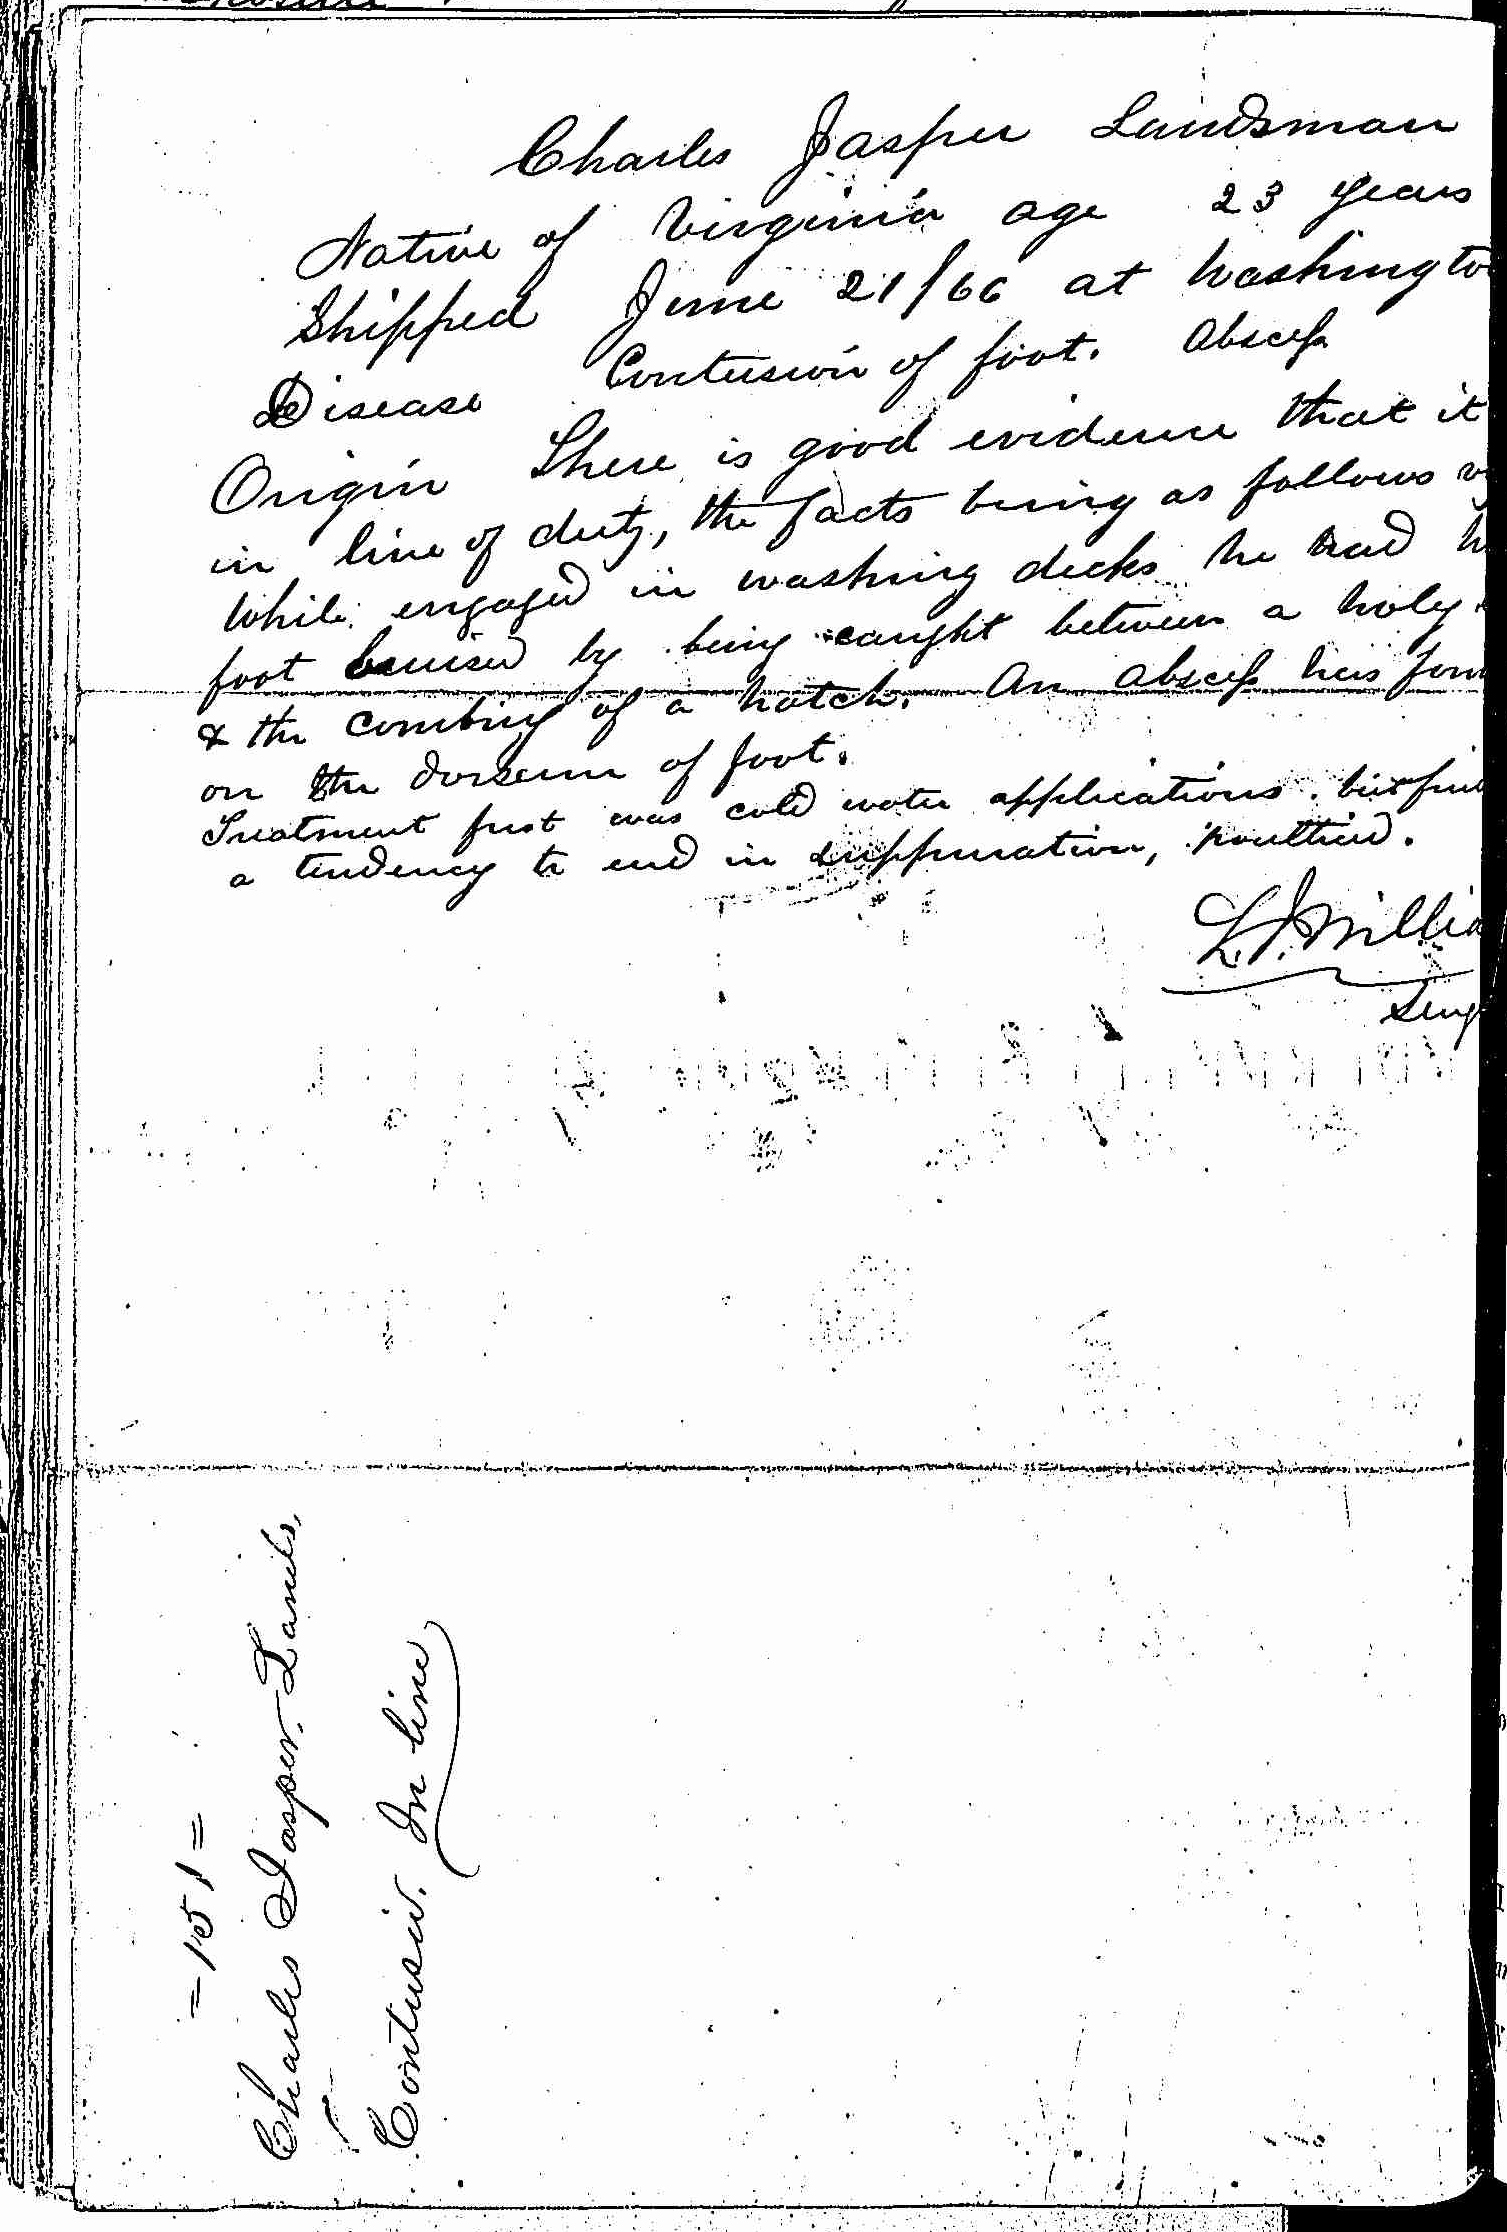 Charles Jasper Landsman
Native of Virginia age 23 years
Shipped June 21/66 at Washingto
Disease Contusion of foot. Abscess
Origin There is good evidence that it
in line of duty, the facts being as follows
While engaged in washing decks he had
foot bruised by being caught between a holy
& the combing of a hatch. An abscess has form
on the dorsum of foot.
Treatment first was cold water applications. but find
a tendency to end in suppuration, poulticed.
L. J. Willia
Surg
=151=
Charles Jasper, Lands.
Contusio. In line